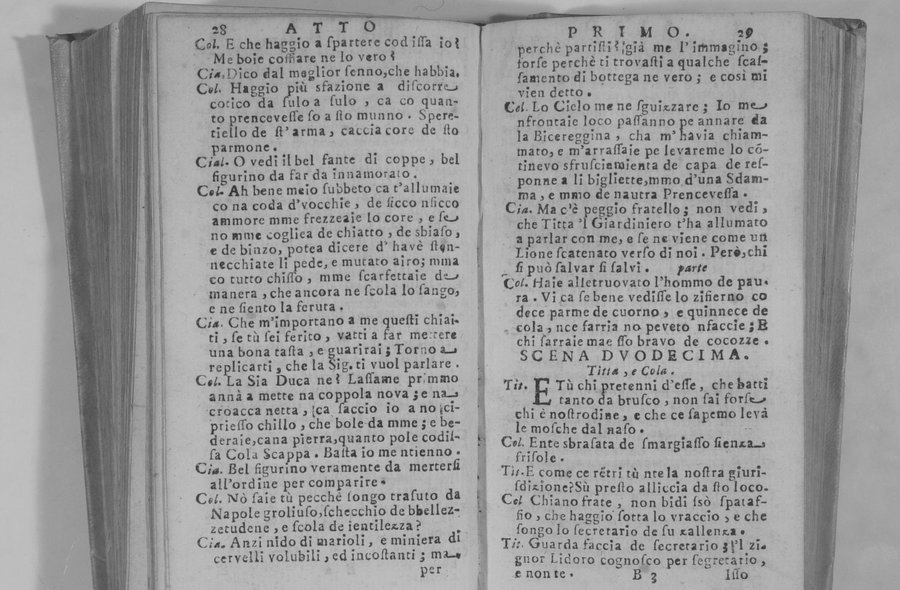 28 ATTO
Col. E che haggio a ſpartere cod iſſa io?
Me boie coſſiare ne lo vero?
Cia. Dico dal meglior ſenno, che habbia.
Col. Haggio più sfazione a diſcorre
cotico da ſulo a ſulo, ca co quan-
to prenceveſſe ſo a ſto munno. Spere-
tiello de ſt'arma, caccia core de ſto
parmone.
Cial. O vedi il bel fante di coppe, bel
figurino da far da innamorato.
Col. Ah bene meio ſubbeto ca t'allumaie
co na coda d'vocchie, de ſicco nſicco
ammore mme frezzeaie lo core, e ſe
no mme coglica de chiatto, de sbiaſo,
e de binzo, potea dicere d'havè ſton-
necchiate li pede, e mutato airo; mma
co tutto chiſſo, mme ſcarfettaie de
manera, che ancora ne ſcola lo ſango,
e ne ſiento la feruta.
Cia. Che m'importano a me queſti chiai-
ti, ſe tù ſei ferito, vatti a far mettere
una bona taſta, e guarirai; Torno a
replicarti, che la Sig. ti vuol parlare.
Col. La Sia Duca ne? Laſſame primmo
annà a mette na coppola nova; e na
croacca netta, ca faccio io a no ci-
prieſſo chillo, che bole da mme; e be-
deraie, cana pierra, quanto pole codiſ-
ſa Cola Scappa. Baſta io me ntienno.
Cia. Bel figurino veramente da metterſi
all'ordine per comparire.
Col. Nò ſaie tù pecchè ſongo traſuto da
Napole groliuſo, ſchecchio de bbellez-
zetudene, e ſcola de ientilezza?
Cia. Anzi nido di marioli, e miniera di
cervelli volubili, ed incoſtanti; ma
per
PRIMO. 29
perchè partiſti? già me l'immagino;
forſe perchè ti trovaſti a qualche ſcaſ-
ſamento di bottega ne vero; e così mi
vien detto.
Col. Lo Cielo me ne ſguizzare; Io me
nfrontaie loco paſſanno pe annare da
la Bicereggina, cha m'havia chiam-
mato, e m'arraſſaie pe levareme lo cō-
tinevo sfruſciamienta de capa de reſ-
ponne a li bigliette, mmo d'una Sdam-
ma, e mmo de nautra Prenceveſſa.
Cia. Ma c'è peggio fratello; non vedi,
che Titta 'l Giardiniero t'ha allumato
a parlar con me, e ſe ne viene come un
Lione ſcatenato verſo di noi. Però, chi
ſi può ſalvar ſi ſalvi. parte
Col. Haie alletruovato l'hommo de pau-
ra. Vi ca ſe bene vediſſe lo zifierno co
dece parme de cuorno, e quinnece de
cola, nce farria no peveto nfaccie; E
chi farraie mae ſſo bravo de cocozze.
SCENA DVODECIMA.
Titta, e Cola.
Tit. E Tù chi pretenni d'eſſe, che batti
tanto da bruſco, non ſai forſe
chi è noſtrodine, e che ce ſapemo levà
le moſche dal naſo.
Col. Ente sbraſata de ſmargiaſſo ſienza
friſole.
Tit. E come ce rētri tù nte la noſtra giuri-
ſdizione? Sù preſto alliccia da ſto loco.
Col Chiano frate, non bidi iſò ſpataf-
fio, che haggio ſotta lo vraccio, e che
ſongo lo ſecretario de ſu xallenza.
Tit. Guarda faccia de ſecretario; 'l zi-
gnor Lidoro cognoſco per ſegretario,
e non te. B 3 Iſſo